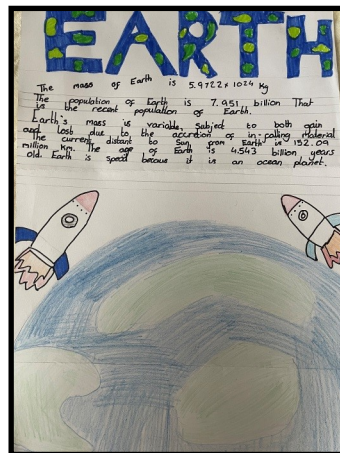 EARTH
The mass of Earth is 5.9722x 1024 kg
The population of Earth is 7.951 billion That
is the recent population of Earth.
Earth's mass is variable, subject to both gain
and lost due to the accretion of in-falling material
The current distant to Sun from Earth is 152.09
million km. The age of Earth is 4.543 billion years
old. Earth is speod becous it is an ocean planet.